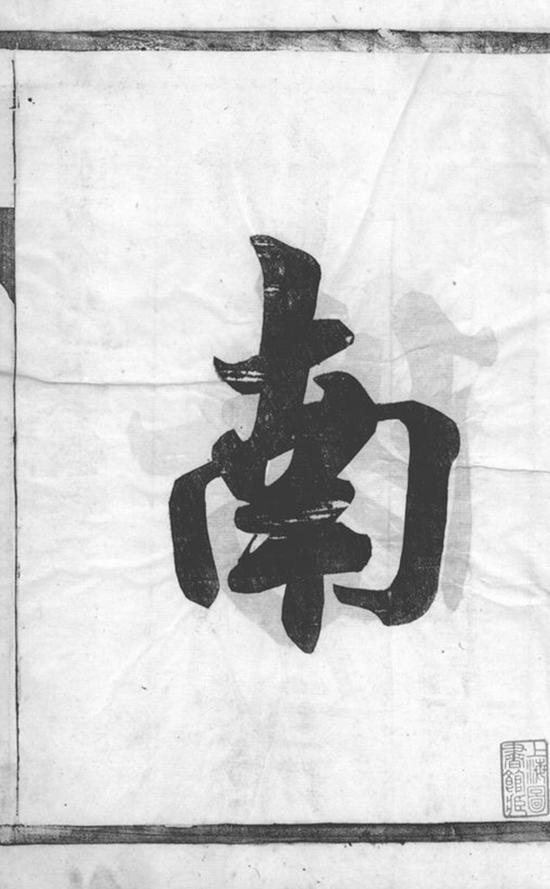 南
上海圖
書館藏